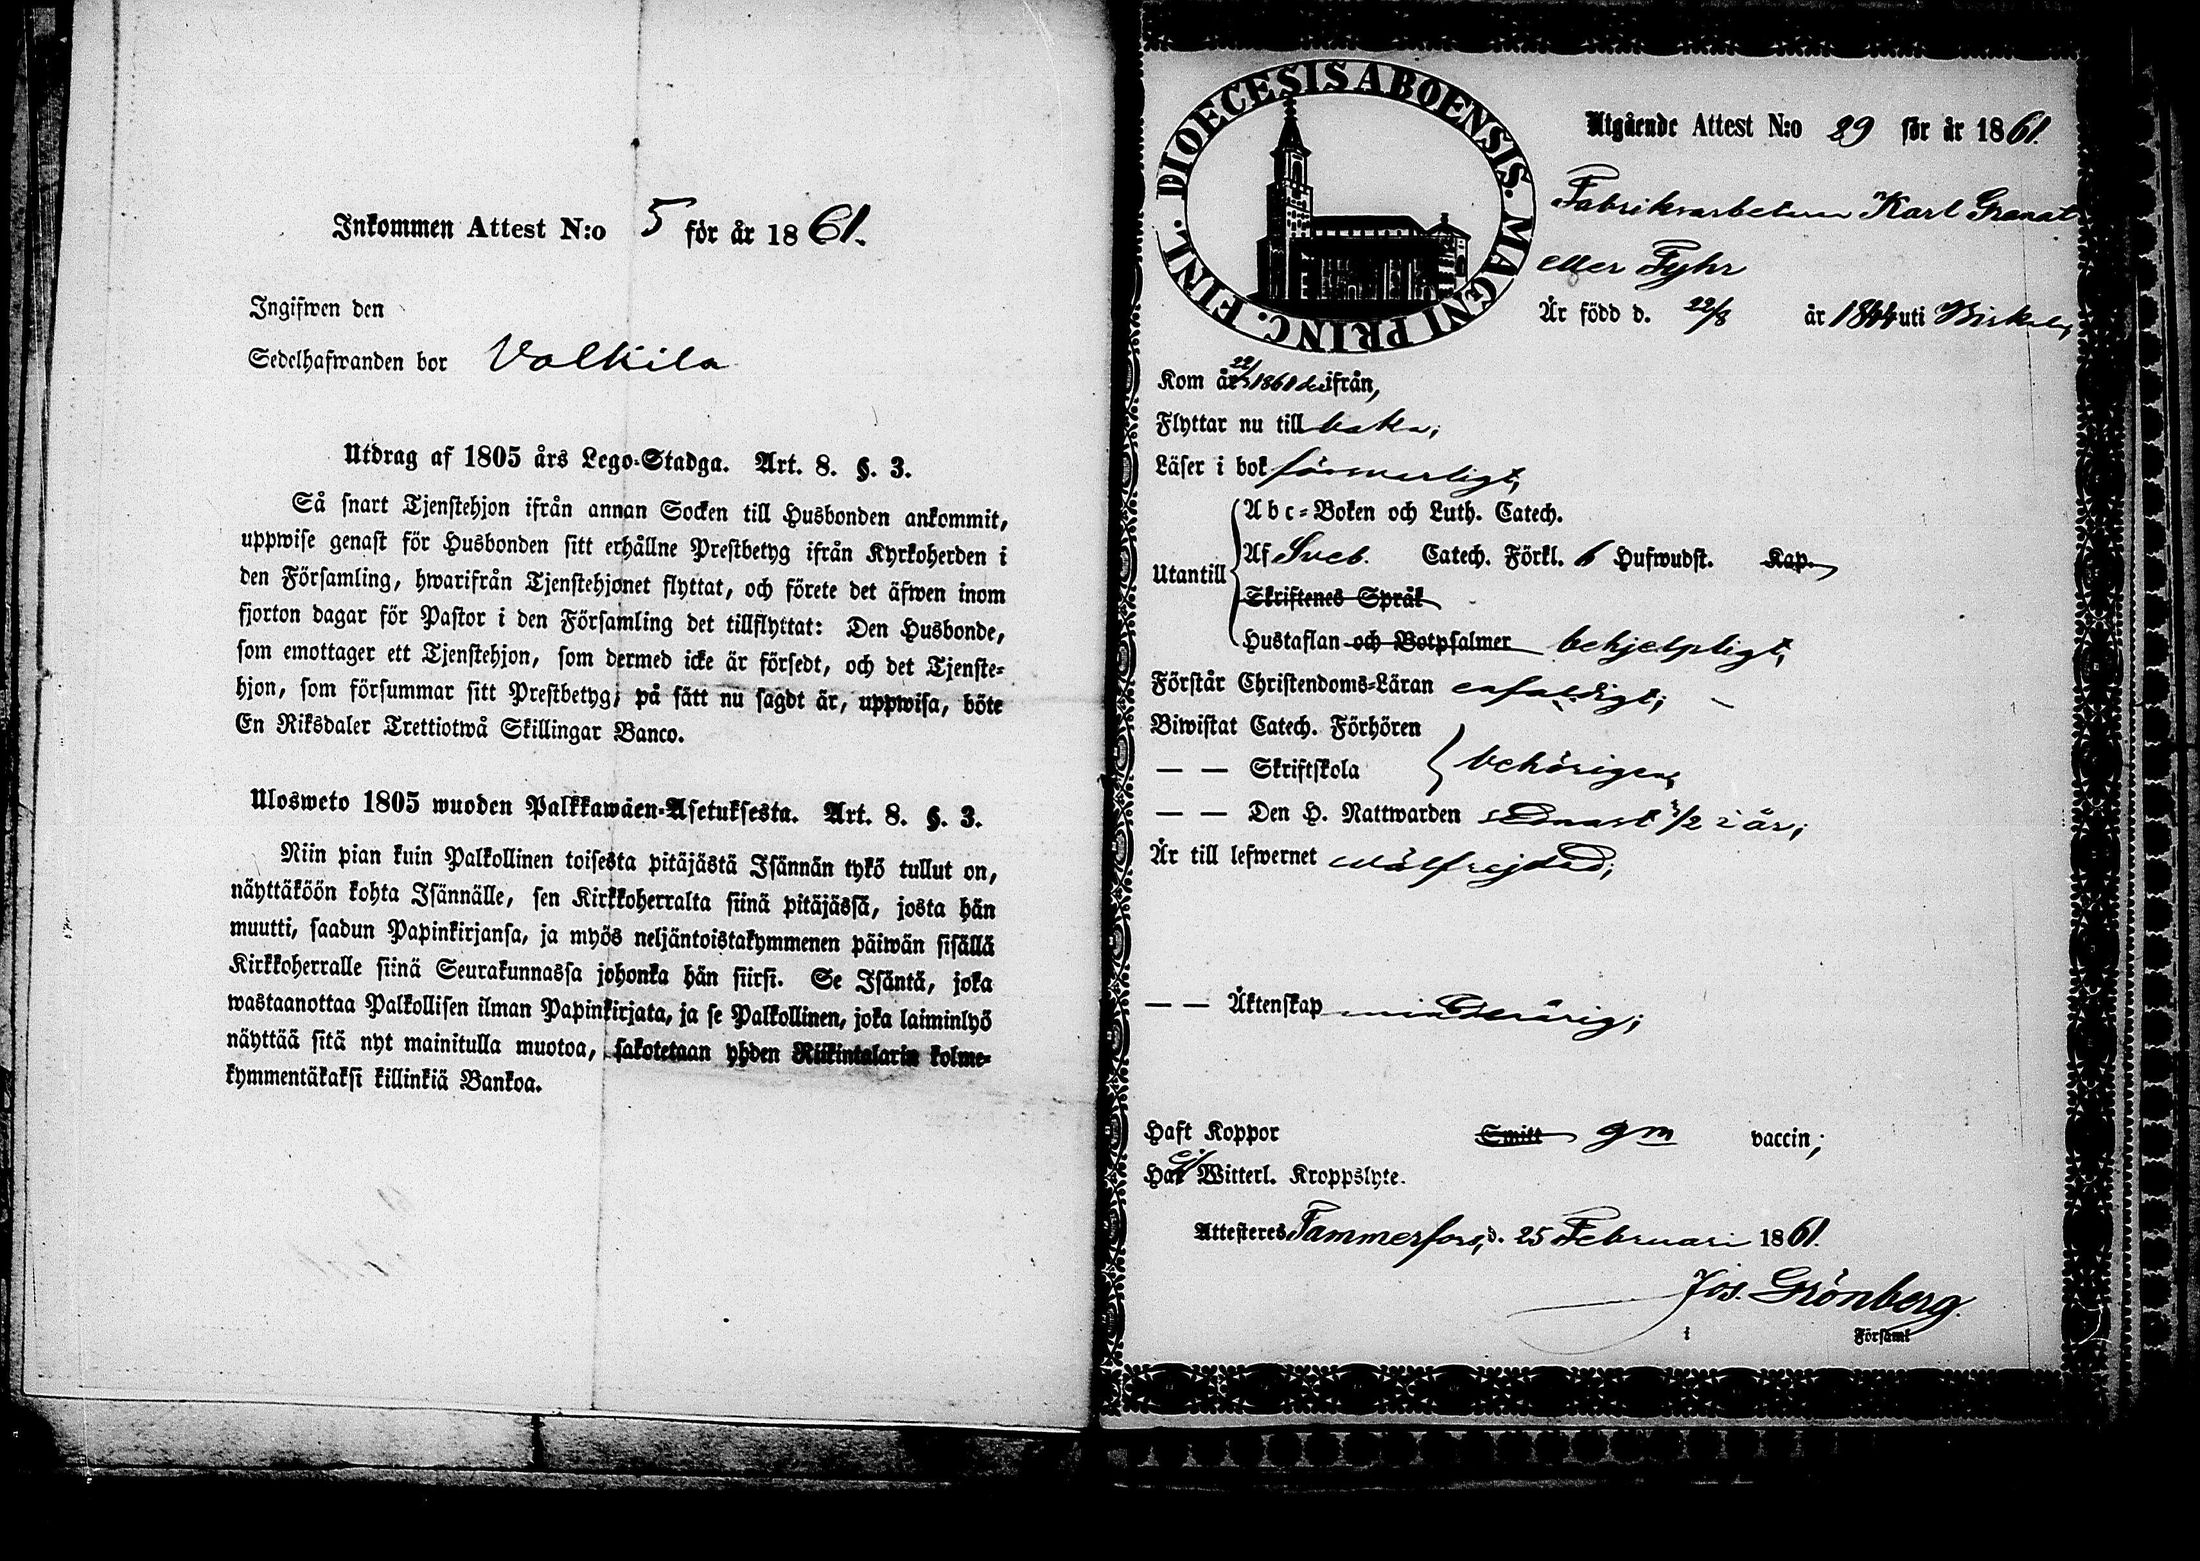 Inkommen Attest N:o 5 för år 1861.
Ingifwen den
Sedelhafwanden bor Valkila
Utdrag af 1805 års Lego-Stadga. Art. 8. §. 3.
Så snart Tjenstehjon ifrån annan Socken till Husbonden ankommit,
uppwise genast för Husbonden sitt erhållne Prestbetyg ifrån Kyrkoherden i
den Församling, hwarifrån Tjenstehjonet flyttat, och förete det äfwen inom
fjorton dagar för Pastor i den Församling det tillflyttat: Den Husbonde,
som emottager ett Tjenstehjon, som dermed icke är försedt, och det Tjenste-
hjon, som försummar sitt Prestbetyg; på sätt nu sagdt är, uppwisa, böte
En Riksdaler Trettiotwå Skillingar Banco.
Ulosweto 1805 wuoden Palkkawäen-Asetuksesta. Art. 8. §. 3.
Niin pian kuin Palkollinen toisesta pitäjästä Isännän tykö tullut on,
näyttäköön kohta Isännälle, sen Kirkkoherralta siinä pitäjässä, josta hän
muutti, saadun Papinkirjansa, ja myös neljäntoistakymmenen päiwän sisällä
Kirkkoherralle siinä Seurakunnassa johonka hän siirsi. Se Isäntä, joka
wastaanottaa Palkollisen ilman Papinkirjata, ja se Palkollinen, joka laiminlyö
näyttää sitä nyt mainitulla muotoa, sakotetaan yhden Riikintalarin kolme-
kymmentäkaksi killinkiä Bankoa.
DIOECESIS ABOENSIS. MAGNI PRINC. FINL.
Utgående Attest N:o 29 för år 1861.
Fabriksarbetaren Karl Granat
eller Fyhr
Är född d. 22/8 år 1844 uti Birkala,
Kom år 1861 derifrån,
Flyttar nu till baka;
Läser i bok förswarligt,
Abc-Boken och Luth. Catech.
Utantill Af Sveb. Catech. Förkl. 6 Hufwudst. Kap.
Skriftenes Språk
Hustaflan och Botpsalmer behjelpligt,
Förstår Christendoms-Läran enfaldigt;
Biwistat Catech. Förhören
— — Skriftskola behörigen,
— — Den H. Nattwarden sednast 3/2 i år;
Är till lefwernet wälfrejdad;
— — Äktenskap minderårig;
Haft Koppor Smitt gm vaccin;
Har ej Witterl. Kroppslyte.
Attesteres Tammerfors, d. 25 Februari 1861.
Jos. Grönberg.
i Församl